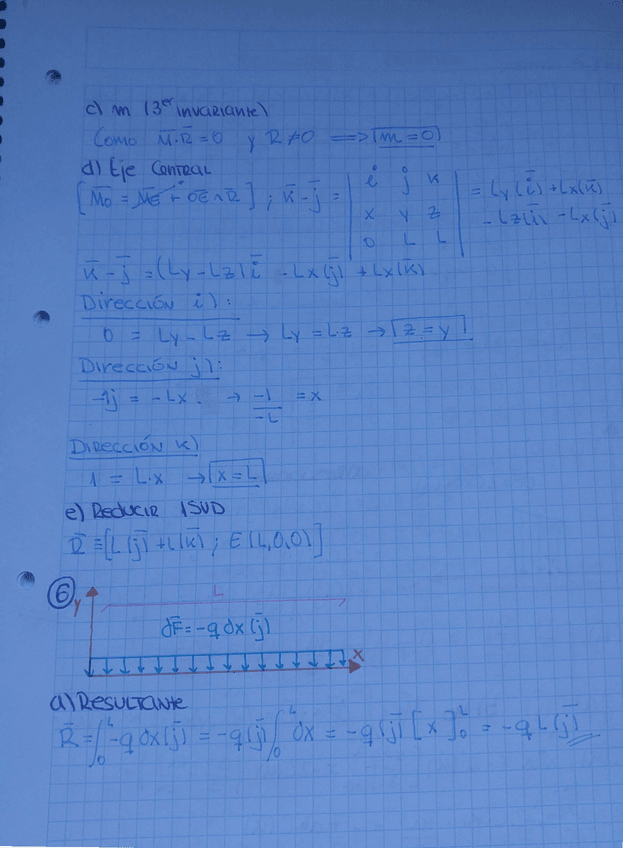 c) m (3er invariante)
Como M̄·R̄=0 y R≠0 ⟹ m=0
d) Eje Central
[M̄o = M̄E + OE∧R̄] ; k̄-j̄ = | i j k | = Ly(ī)+Lx(k̄)
| x y z | -Lz(ī) -Lx(j̄)
| 0 L L |
k̄-j̄ =(Ly-Lz)ī -Lx(j̄) +Lx(k̄)
Dirección i):
0 = Ly-Lz → Ly=Lz → z=y
Dirección j):
-1j = -Lx. → -1/-L = x
Dirección k)
1 = L·x → x=L
e) Reducir 1SVD
R̄ ≡[L(j̄)+L(k̄) ; E(L,0,0)]
6
y
L
dF̄=-q dx(j̄)
x
a) Resultante
R̄ = ∫₀ᴸ -q dx(j̄) = -q(j̄) ∫₀ᴸ dx = -q(j̄)[x]₀ᴸ = -qL(j̄)